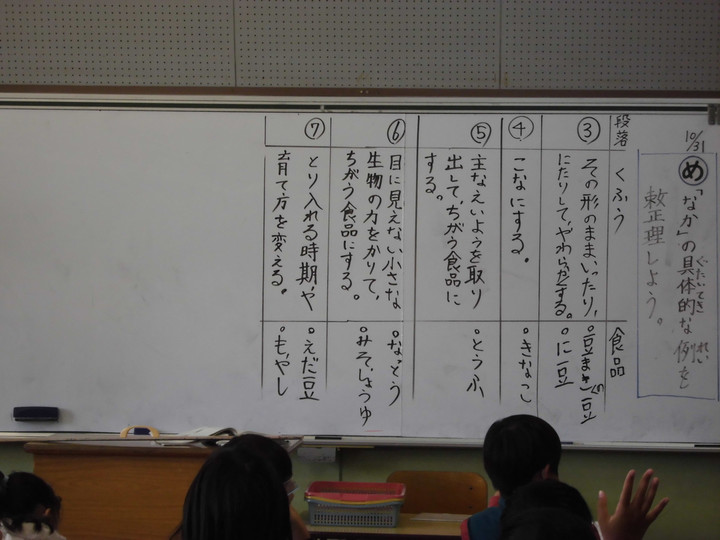 10/31
め「なか」の具体的な例を
ぐたいてき
れい
整理しよう。
段落
くふう
食品
③
その形のままいったり、
にたりして、やわらかくする。
。豆まきの豆
。に豆
④
こなにする。
。きなこ
⑤
主なえいようを取り
出して、ちがう食品に
する。
。とうふ
⑥
目に見えない小さな
生物の力をかりて、
ちがう食品にする。
。なっとう
。みそ、しょうゆ
⑦
とり入れる時期や
育て方を変える。
。えだ豆
。もやし